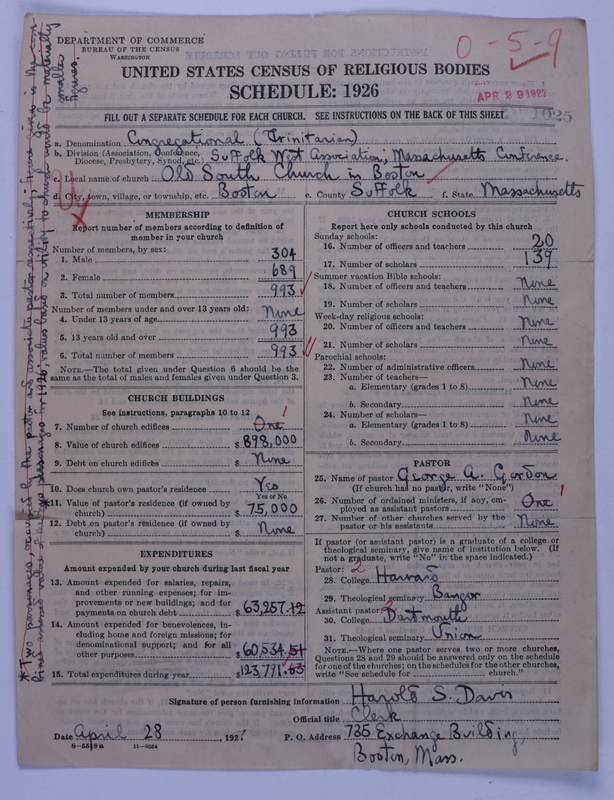 DEPARTMENT OF COMMERCE
BUREAU OF THE CENSUS
WASHINGTON
0-5-9
UNITED STATES CENSUS OF RELIGIOUS BODIES
SCHEDULE: 1926
APR 29 1927
FILL OUT A SEPARATE SCHEDULE FOR EACH CHURCH. SEE INSTRUCTIONS ON THE BACK OF THIS SHEET
a. Denomination Congregational (Trinitarian)
b. Division (Association, Conference, Diocese, Presbytery, Synod, etc.) Suffolk West Association; Massachusetts Conference.
c. Local name of church Old South Church in Boston
d. City, town, village, or township, etc. Boston e. County Suffolk f. State Massachusetts
MEMBERSHIP
Report number of members according to definition of
member in your church
Number of members, by sex:
1. Male 304
2. Female 689
3. Total number of members 993
Number of members under and over 13 years old:
4. Under 13 years of age None
5. 13 years old and over 993
6. Total number of members 993
NOTE.—The total given under Question 6 should be
same as the total of males and females given under Question 3.
CHURCH BUILDINGS
See instructions, paragraphs 10 to 12
7. Number of church edifices One 1
8. Value of church edifices $ 898,000
9. Debt on church edifices $ None
10. Does church own pastor's residence Yes
Yes or No
*11. Value of pastor's residence (if owned by
church) $ 75,000
12. Debt on pastor's residence (if owned by
church) $ None
EXPENDITURES
Amount expended by your church during last fiscal year
13. Amount expended for salaries, repairs,
and other running expenses; for im-
provements or new buildings; and for
payments on church debt $ 63,257.12
14. Amount expended for benevolences, in-
cluding home and foreign missions; for
denominational support; and for all
other purposes $ 60,534.51
15. Total expenditures during year $ 123,791.63
CHURCH SCHOOLS
Report here only schools conducted by this church
Sunday schools:
16. Number of officers and teachers 20
17. Number of scholars 139
Summer vacation Bible schools:
18. Number of officers and teachers None
19. Number of scholars None
Week-day religious schools:
20. Number of officers and teachers None
21. Number of scholars None
Parochial schools:
22. Number of administrative officers None
23. Number of teachers—
a. Elementary (grades 1 to 8) None
b. Secondary None
24. Number of scholars—
a. Elementary (grades 1 to 8) None
b. Secondary None
PASTOR
25. Name of pastor George A. Gordon
(If church has no pastor, write "None")
26. Number of ordained ministers, if any, em-
ployed as assistant pastors One 1
27. Number of other churches served by the
pastor or his assistants None
If pastor (or assistant pastor) is a graduate of a college or
theological seminary, give name of institution below. (If
not a graduate, write "No" in the space indicated.)
Pastor: 2
28. College Harvard
29. Theological seminary Bangor
Assistant pastor:
30. College Dartmouth
31. Theological seminary Union
NOTE.—Where one pastor serves two or more churches,
Questions 28 and 29 should be answered only on the schedule
for one of the churches; on the schedules for the other churches,
write "See schedule for church."
Signature of person furnishing information Harold S. Davis
Official title Clerk
Date April 28, 1927 P. O. Address 735 Exchange Building,
Boston, Mass.
8-5518a 11-9034